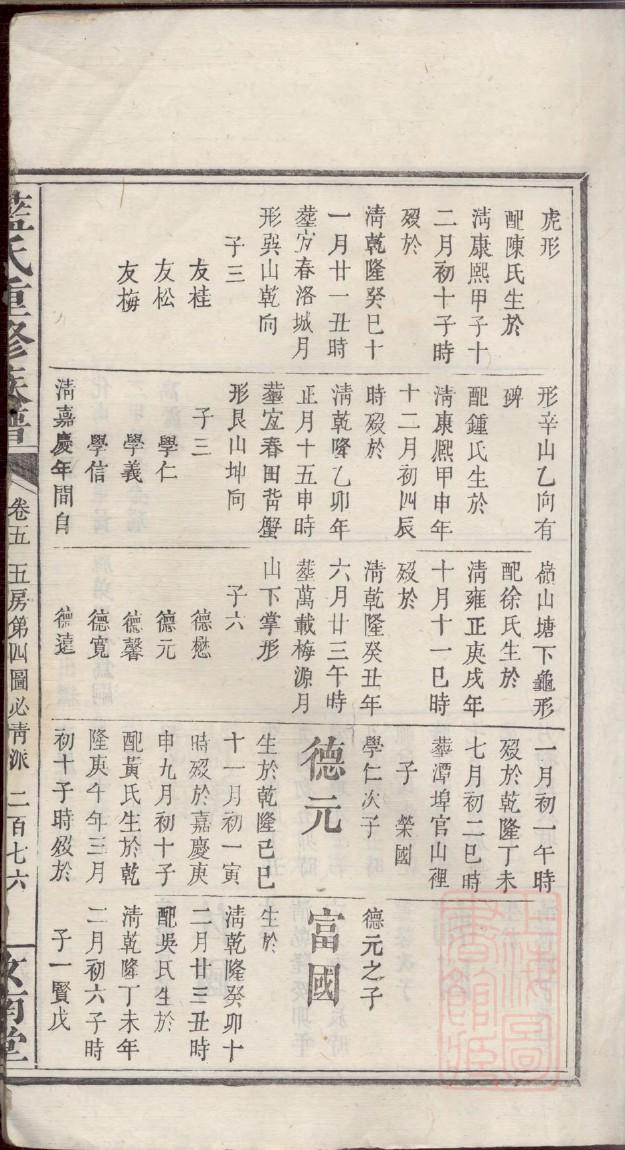 虎形
配陳氏生於
淸康熙甲子十
二月初十子時
歿於
淸乾隆癸巳十
一月廿一丑時
葬宜春洛城月
形巽山乾向
子三
友桂
友松
友梅
形辛山乙向有
碑
配鍾氏生於
淸康熙甲申年
十二月初四辰
時歿於
淸乾隆乙卯年
正月十五申時
葬宜春田背蟹
形艮山坤向
子三
學仁
學義
學信
淸嘉慶年間自
嶺山塘下龜形
配徐氏生於
淸雍正庚戌年
十月十一巳時
歿於
淸乾隆癸丑年
六月廿三午時
葬萬載梅源月
山下掌形
子六
德懋
德元
德馨
德寬
德遠
一月初一午時
歿於乾隆丁未
七月初二巳時
葬潭埠官山裡
子 榮國
學仁次子
德元
生於乾隆己巳
十一月初一寅
時歿於嘉慶庚
申九月初十子
配黃氏生於乾
隆庚午年三月
初十子時歿於
德元之子
富國
生於
淸乾隆癸卯十
二月廿三丑時
配吳氏生於
淸乾隆丁未年
二月初六子時
子一賢戊
藍氏重修族譜
卷五 五房第四圖必靑派 二百七六
汝南堂